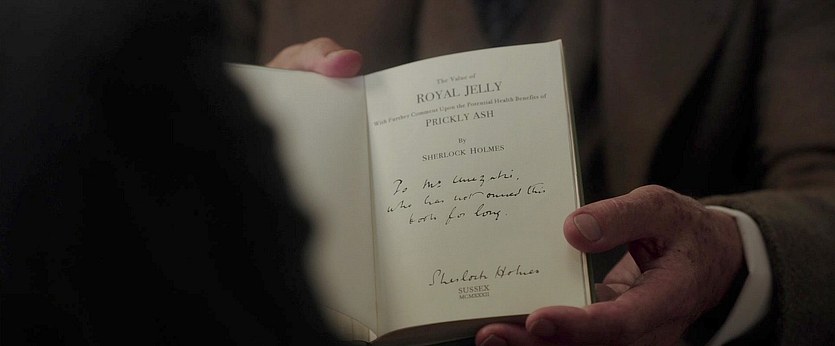 The Value of
ROYAL JELLY
With Further Comment Upon the Potential Health Benefits of
PRICKLY ASH
By
SHERLOCK HOLMES
To Mr Umezaki,
who has not owned this
book for long.
Sherlock Holmes
SUSSEX
MCMXXXII